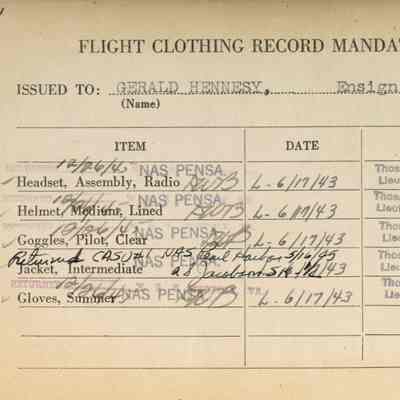 FLIGHT CLOTHING RECORD MANDA
ISSUED TO: GERALD HENNESY, Ensign
(Name)
ITEM DATE
12/26/45 NAS PENSA. Thos
Headset, Assembly, Radio L-6/17/43 Lieu
NAS PENSA. Thos
Helmet, Medium, Lined L-6/17/43 Lieut
12/26/45 NAS PENSA. Thos
Goggles, Pilot, Clear L-6/17/43 Lieu
Returned CASU#1 NAS Pearl Harbor 5/16/45 Thos
Jacket, Intermediate /43 Lieu
NAS PENSA. Tho
Gloves, Summer L-6/17/43 Lieu